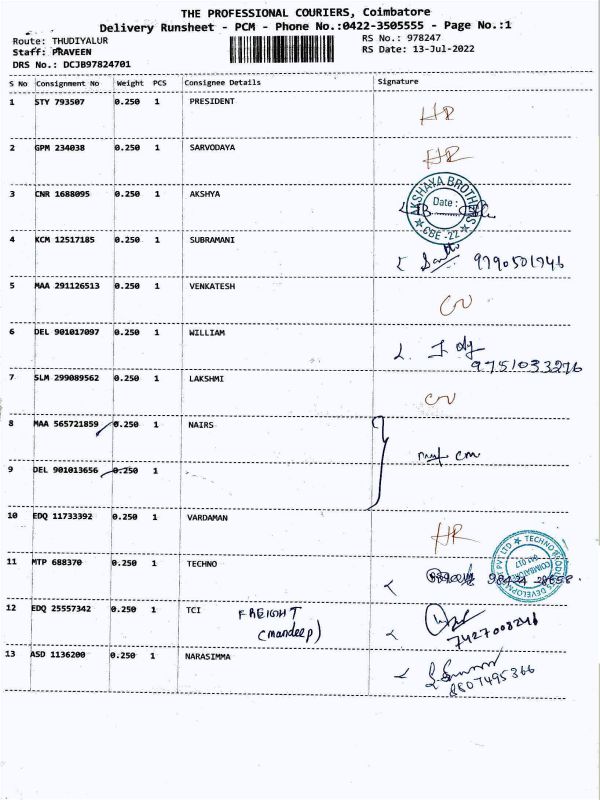 THE PROFESSIONAL COURIERS, Coimbatore
Delivery Runsheet - PCM - Phone No.:0422-3505555 - Page No.:1
Route: THUDIYALUR RS No.: 978247
Staff: PRAVEEN RS Date: 13-Jul-2022
DRS No.: DCJB97824701
S No Consignment No Weight PCS Consignee Details Signature
1 STY 793507 0.250 1 PRESIDENT HR
2 GPM 234038 0.250 1 SARVODAYA HR
3 CNR 1688095 0.250 1 AKSHYA
AKSHAYA BROTHERS
Date :
CBE -22
4 KCM 12517185 0.250 1 SUBRAMANI
9790501746
5 MAA 291126513 0.250 1 VENKATESH
6 DEL 901017097 0.250 1 WILLIAM
9751033276
7 SLM 299089562 0.250 1 LAKSHMI
8 MAA 565721859 0.250 1 NAIRS
9 DEL 901013656 0.250 1
10 EDQ 11733392 0.250 1 VARDAMAN HR
11 MTP 688370 0.250 1 TECHNO
12 EDQ 25557342 0.250 1 TCI FREIGHT
(mandeep)
7427008246
13 ASD 1136200 0.250 1 NARASIMMA
8807495366